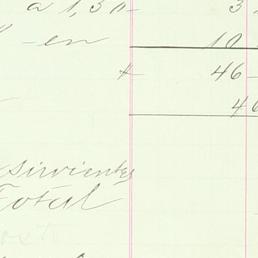 a 1,30 3
en 10
# 46
46
sirvientes
Total